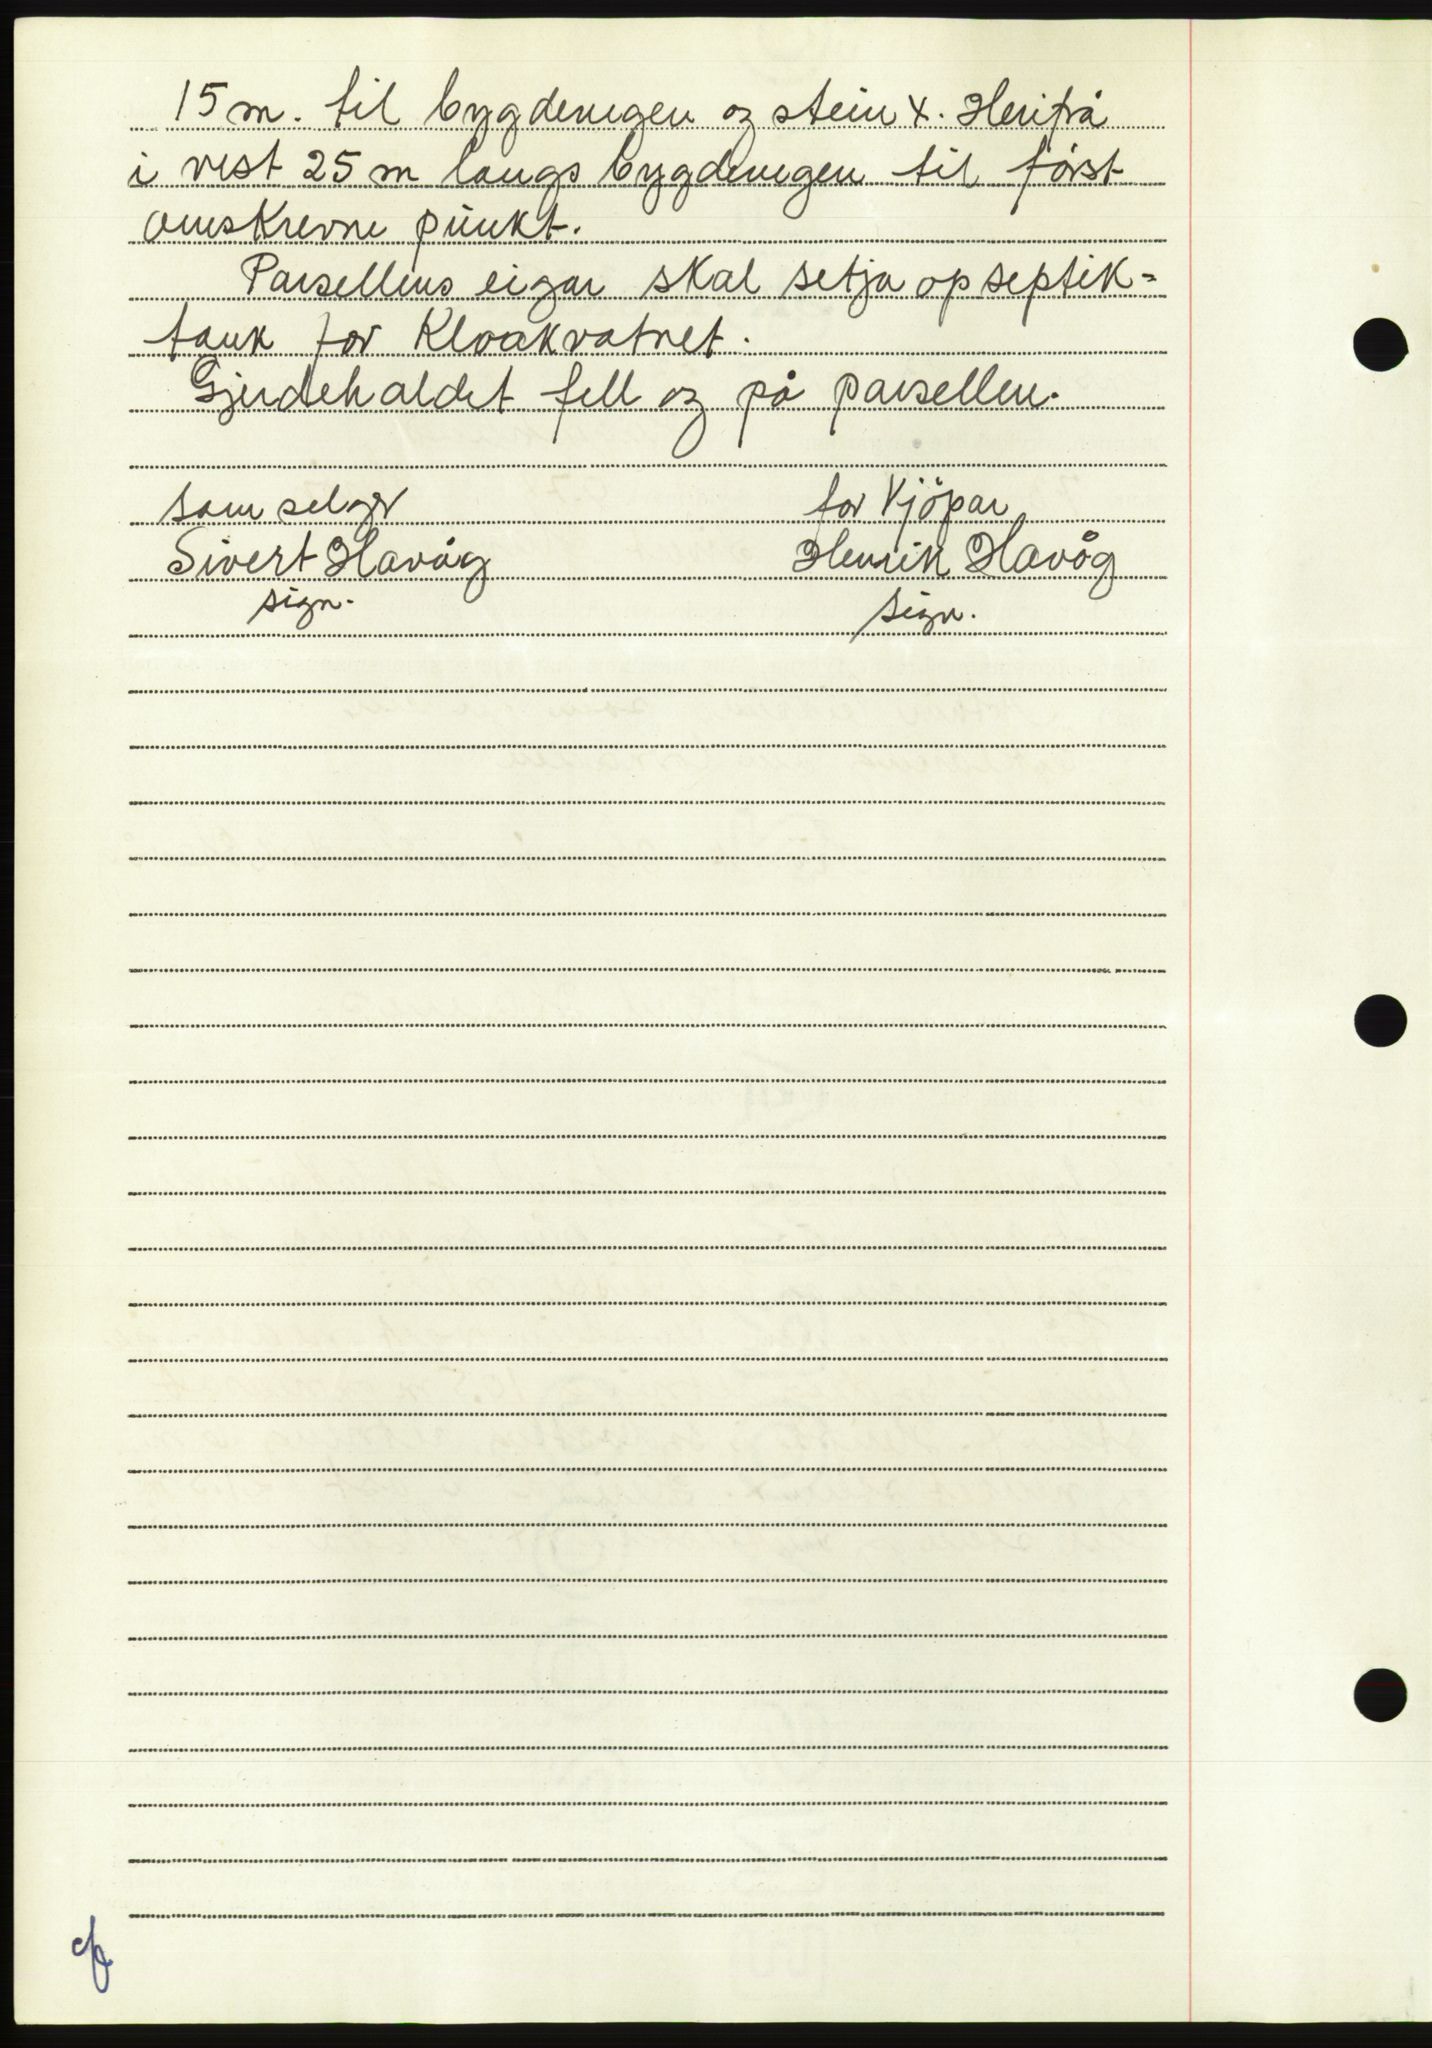 15 m. til bygdevegen og stein x. Herifrå
i vest 25 m langs bygdevegen til först
omskrevne punkt.
Parsellens eigar skal setja op septik=
tank for Kloakvatnet.
Gjerdehaldet fell og på parsellen.
som selger for Kjöpar
Sivert Havåg Henrik Havåg
sign. sign.